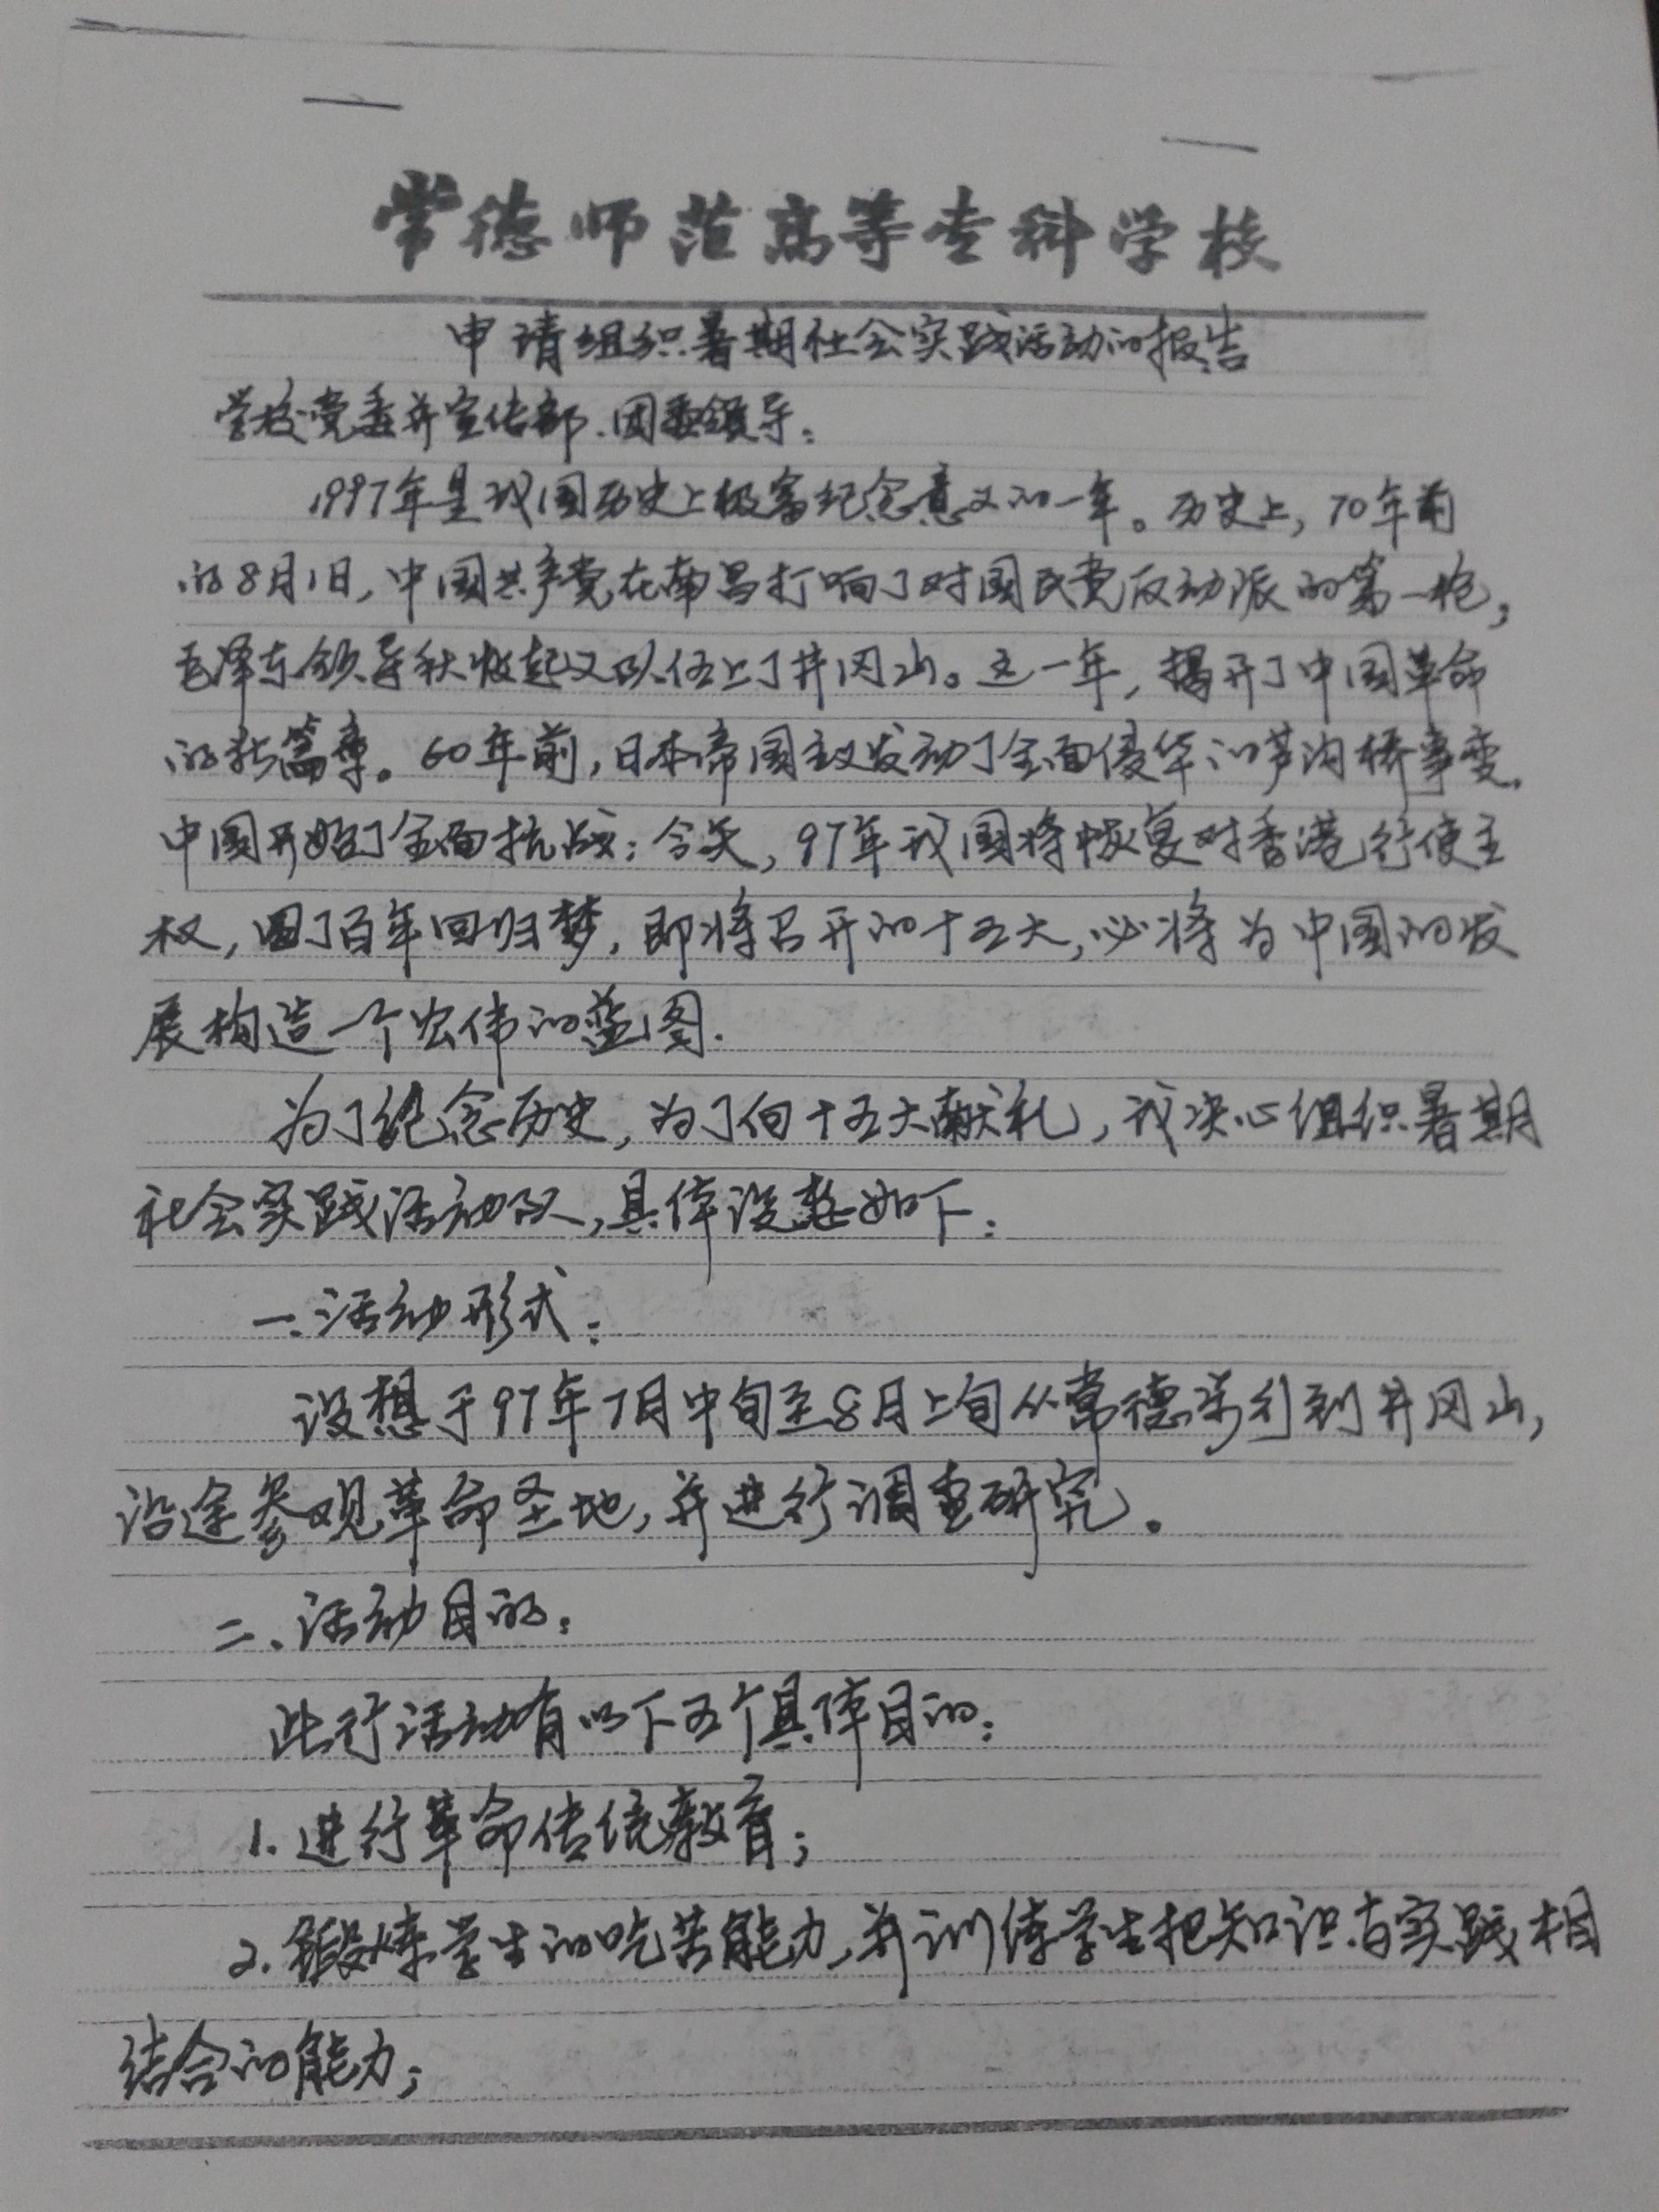 常德师范高等专科学校
申请组织暑期社会实践活动的报告
学校党委并宣传部、团委领导：
1997年是我国历史上极富纪念意义的一年。历史上，70年前
的8月1日，中国共产党在南昌打响了对国民党反动派的第一枪，
毛泽东领导秋收起义队伍上了井冈山。这一年，揭开了中国革命
的新篇章。60年前，日本帝国主义发动了全面侵华的芦沟桥事变，
中国开始了全面抗战；今天，97年我国将恢复对香港行使主
权，圆了百年回归梦，即将召开的十五大，必将为中国的发
展构造一个宏伟的蓝图.
为了纪念历史，为了向十五大献礼，我决心组织暑期
社会实践活动队，具体设想如下：
一、活动形式：
设想于97年7月中旬至8月上旬从常德步行到井冈山，
沿途参观革命圣地，并进行调查研究。
二、活动目的：
此行活动有以下五个具体目的：
1.进行革命传统教育；
2.锻炼学生的吃苦能力，并训练学生把知识与实践相
结合的能力；